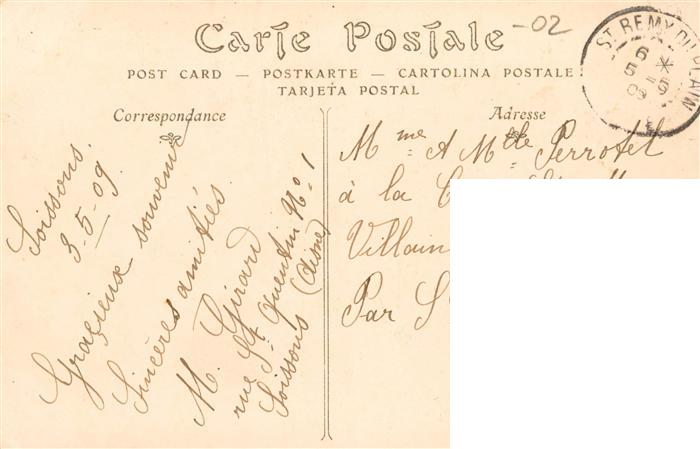 -02
Carte Postale
POST CARD — POSTKARTE — CARTOLINA POSTALE
TARJETA POSTAL
Correspondance
Soissons.
3-5-09
Gracieux souvenir
Sincères amitiés
M. Girard
rue St Quentin No 1
Soissons (Aisne)
Adresse
Mme A Mlle Perrotel
à la
Villain
Par S
ST REMY DU PLAIN
6 5
5 09